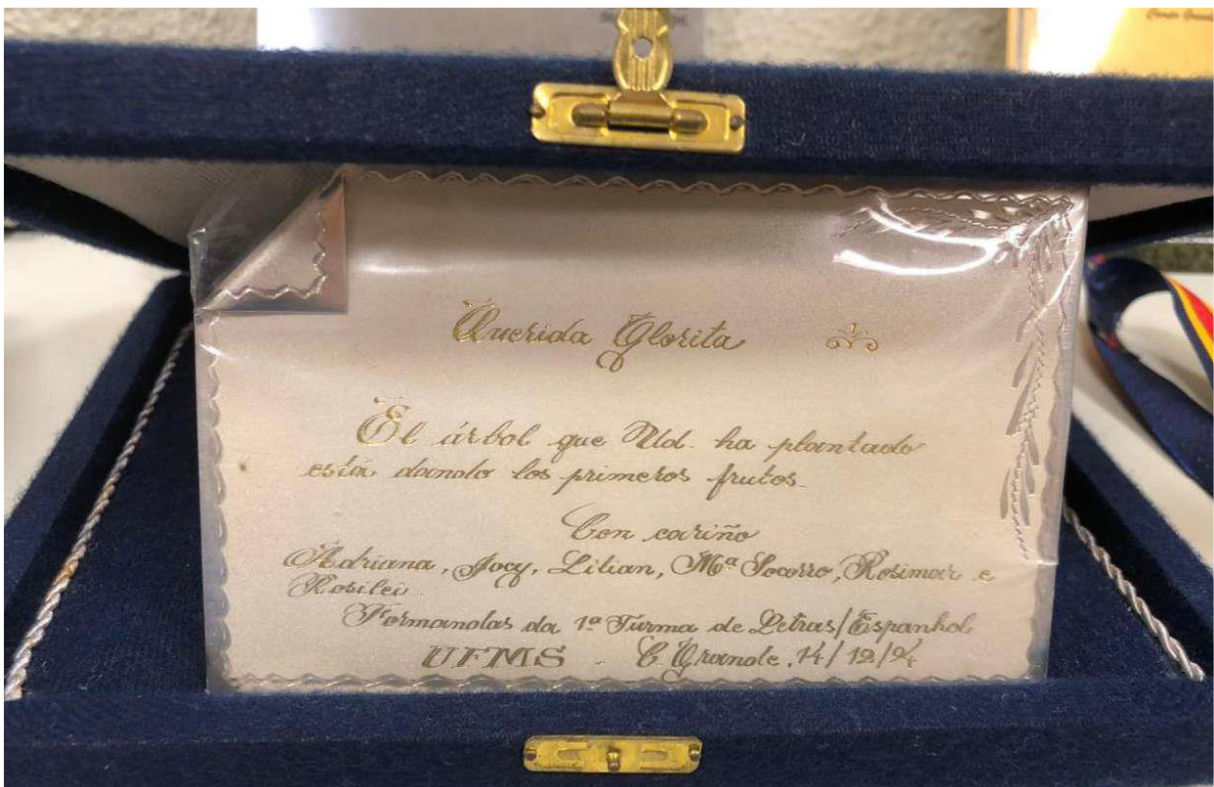 Querida Glorita
El árbol que Ud. ha plantado
está dando los primeros frutos.
Con cariño
Adriana, Jocy, Lilian, Mª Socorro, Rosimar e
Rosilei.
Formandas da 1ª Turma de Letras/Espanhol
UFMS - C. Grande, 14/12/94